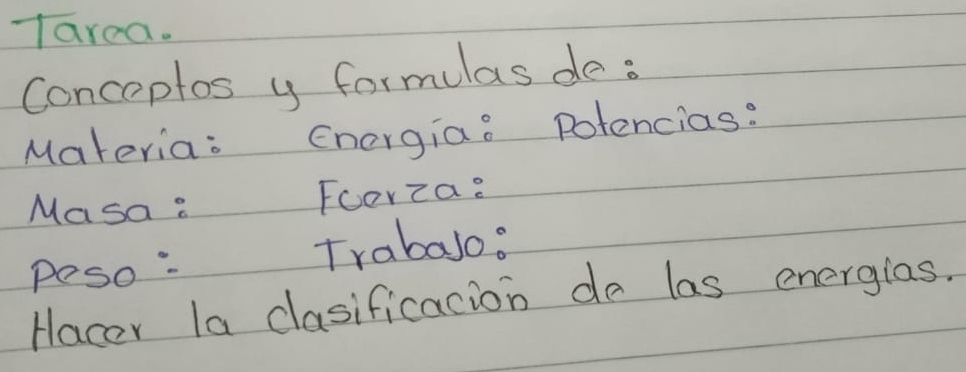 Tarea.
Conceptos y formulas de:
Materia: Energía: Potencias:
Masa: Fuerza:
Peso: Trabajo:
Hacer la clasificación de las energías.